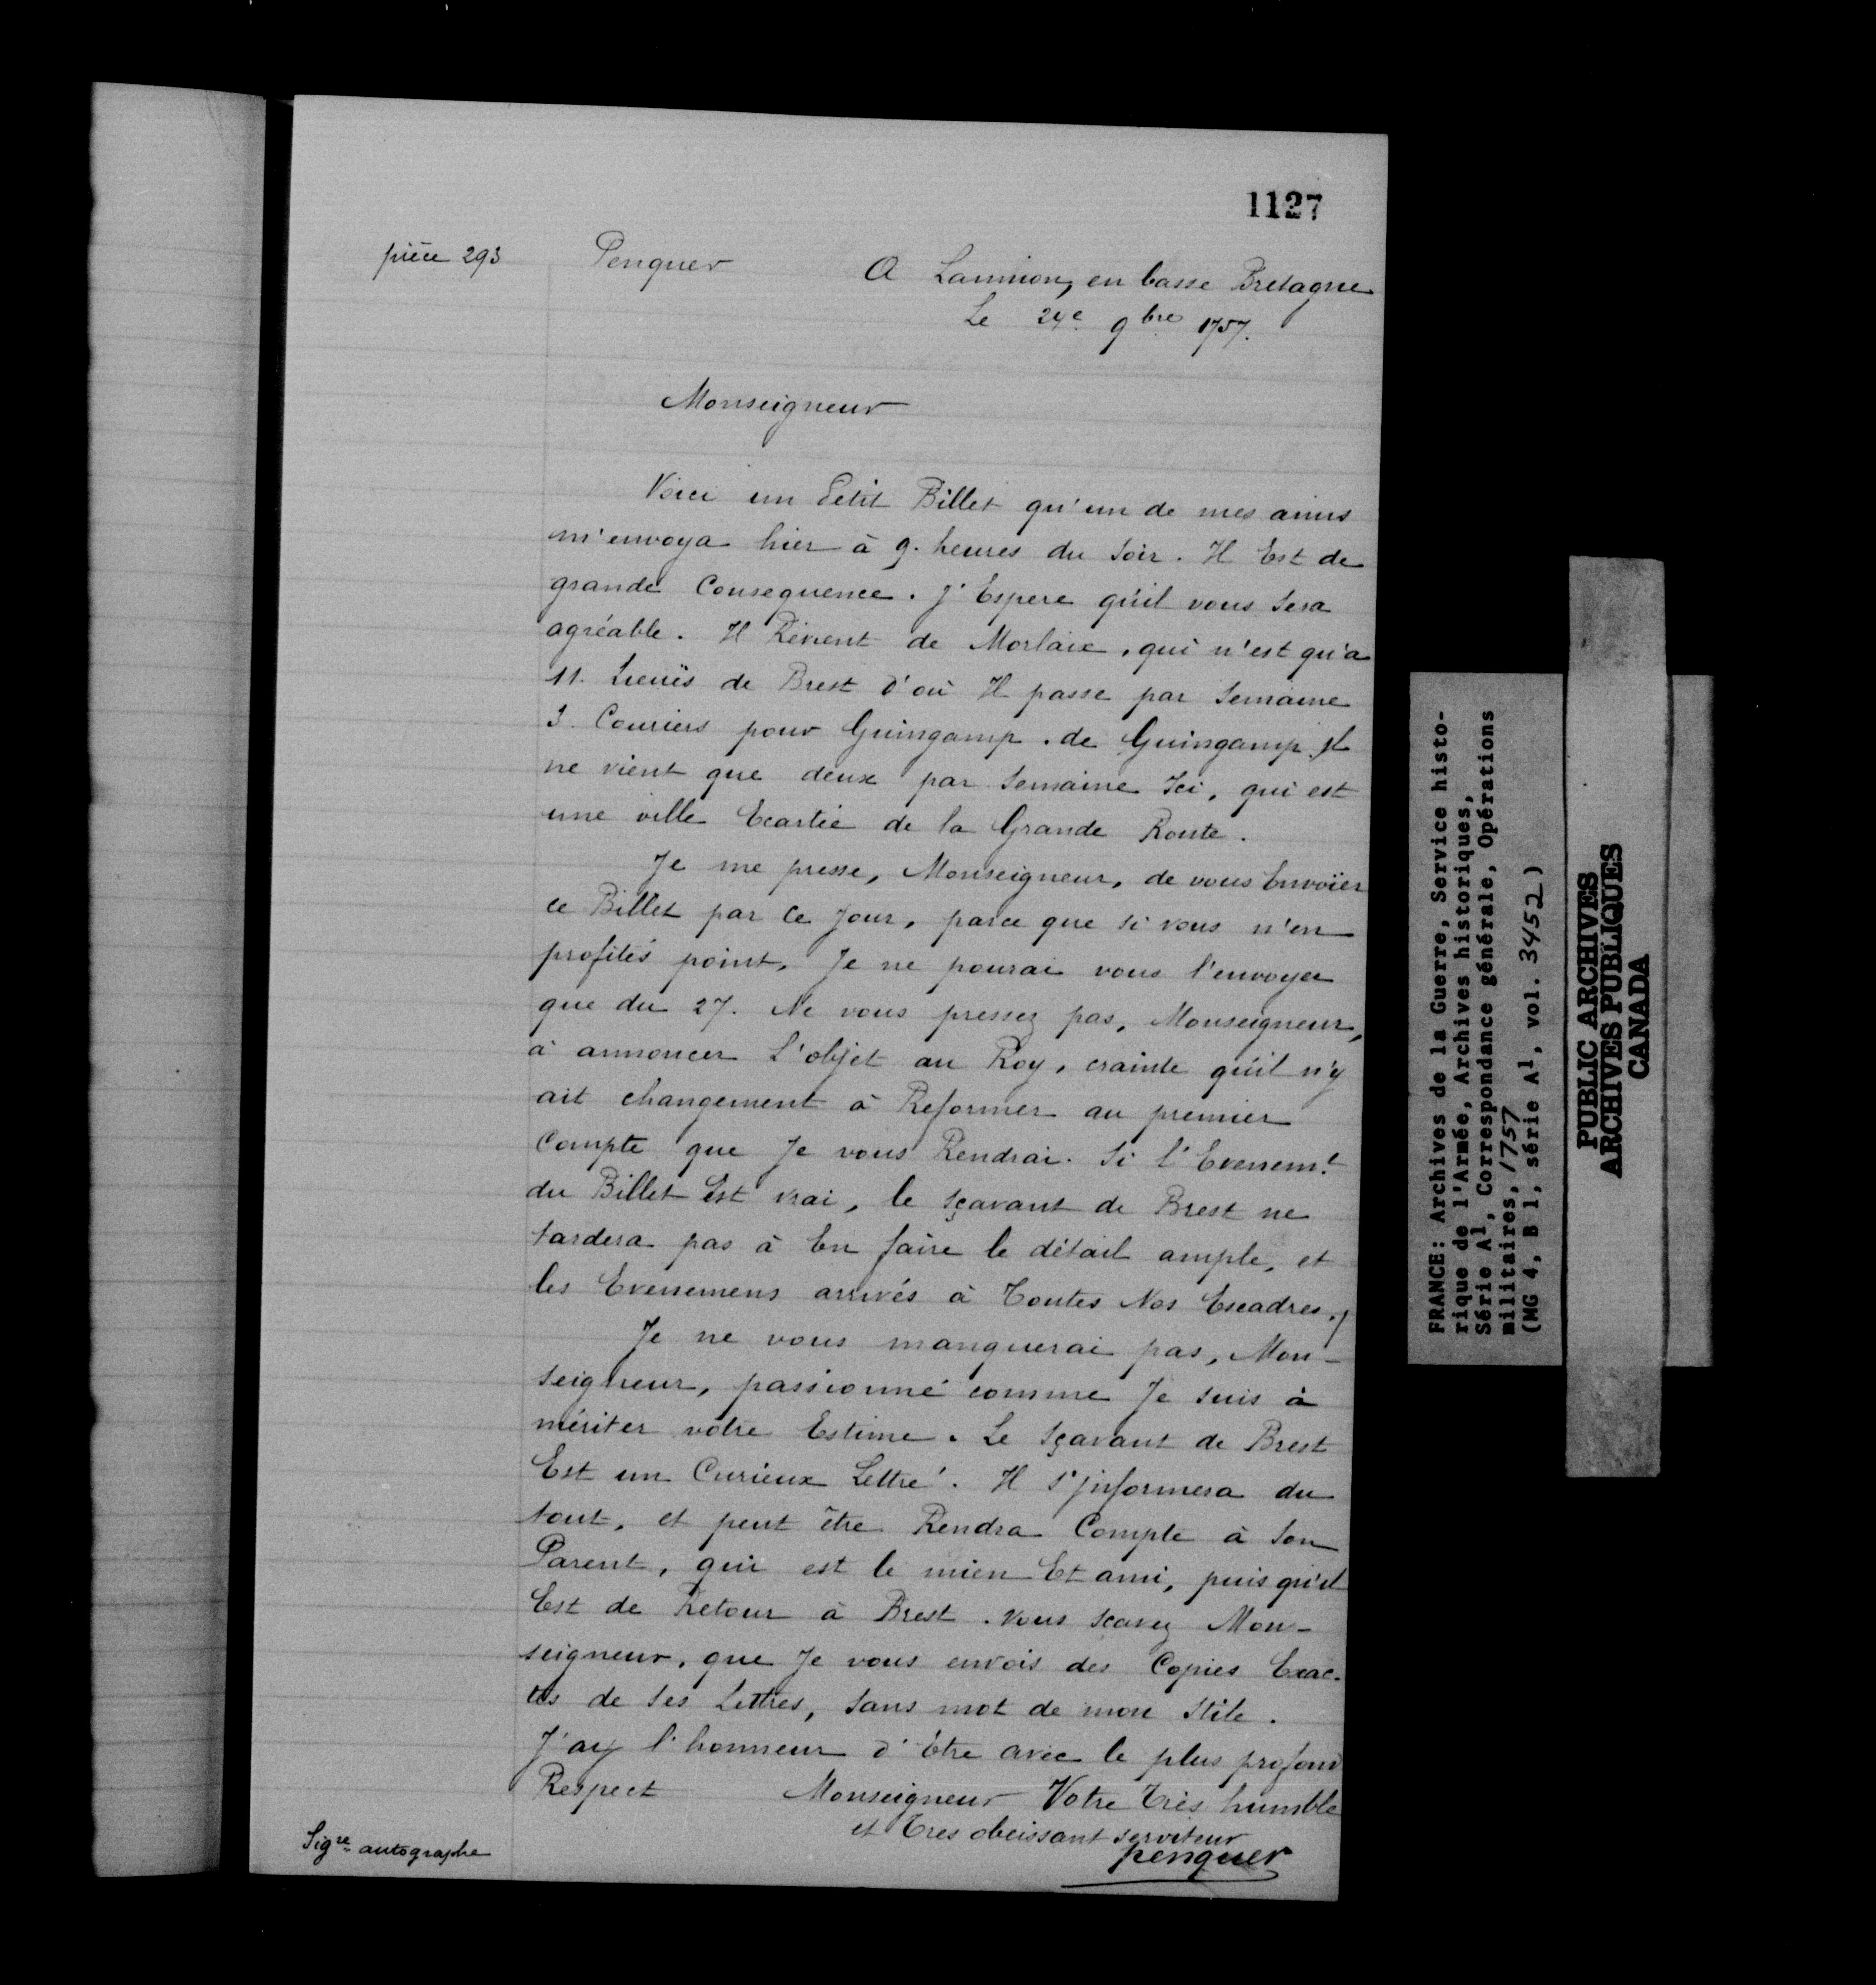 1127
pièce 293
Penquer
A Lannion, en basse Bretagne
Le 24e 9bre 1757.
Monseigneur
Voici un Petit Billet qu'un de mes amis
m'envoya hier à 9. heures du Soir. Il Est de
grande Consequence. J'Espere qu'il vous Sera
agréable. Il Revient de Morlaix, qui n'est qu'a
11. Lieuës de Brest d'où Il passe par Semaine
3. Couriers pour Guingamp. de Guingamp Il
ne vient que deux par Semaine Ici, qui est
une ville Ecartée de la Grande Route.
Je me presse, Monseigneur, de vous Envoïer
ce Billet par Ce Jour, parce que si vous n'en
profités point, Je ne pourai vous l'envoyer
que du 27. Ne vous pressez pas, Monseigneur,
à annoncer L'objet au Roy, crainte qu'il n'y
ait changement à Reformer au premier
Compte que Je vous Rendrai. Si l'Evenemt.
du Billet Est vrai, le sçavant de Brest ne
tardera pas à En faire le détail ample, et
les Evenemens arrivés à Toutes Nos Escadres./
Je ne vous manquerai pas, Mon-
seigneur, passionné comme Je suis à
mériter votre Estime. Le Sçavant de Brest
Est un Curieux Lettré. Il s'Informera du
tout, et peut être Rendra Compte à Son
Parent, qui est le mien Et ami, puis qu'il
Est de Retour à Brest. Vous scavez Mon-
seigneur, que Je vous envois des Copies Exac-
tes de Ses Lettres, Sans mot de mon Stile.
J'ay l'honneur d'être avec le plus profond
Respect Monseigneur Votre Très humble
et Tres obeissant serviteur
penquer
Sigre autographe
FRANCE: Archives de la Guerre, Service histo-
rique de l'Armée, Archives historiques,
Série A1, Correspondance générale, Opérations
militaires, 1757
(MG 4, B 1, série A1, vol. 3452)
PUBLIC ARCHIVES
ARCHIVES PUBLIQUES
CANADA